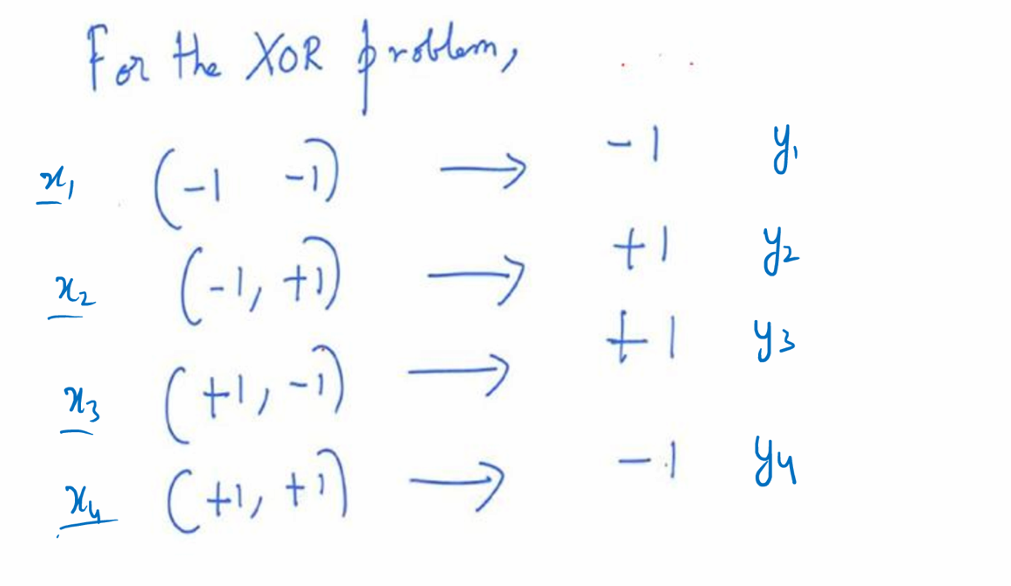 For the XOR problem,
x1 (-1 -1) → -1 y1
x2 (-1, +1) → +1 y2
x3 (+1, -1) → +1 y3
x4 (+1, +1) → -1 y4